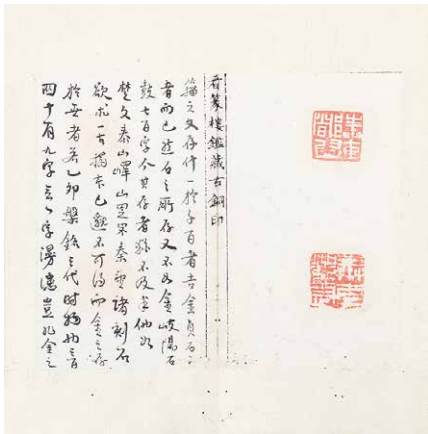 看篆樓鑑藏古銅印
籀之文存什一於千百者吉金貞石二
者而已然石之所存又不如金岐陽石
鼓七百字今其存者殆不及半他如
楚文泰山嶧山之罘秦望諸刻石
欲求一搨本已邈不可得而金之存
於世者若乙卯槃銘三代時物也三百
四十有九字字漫漶豈非金之